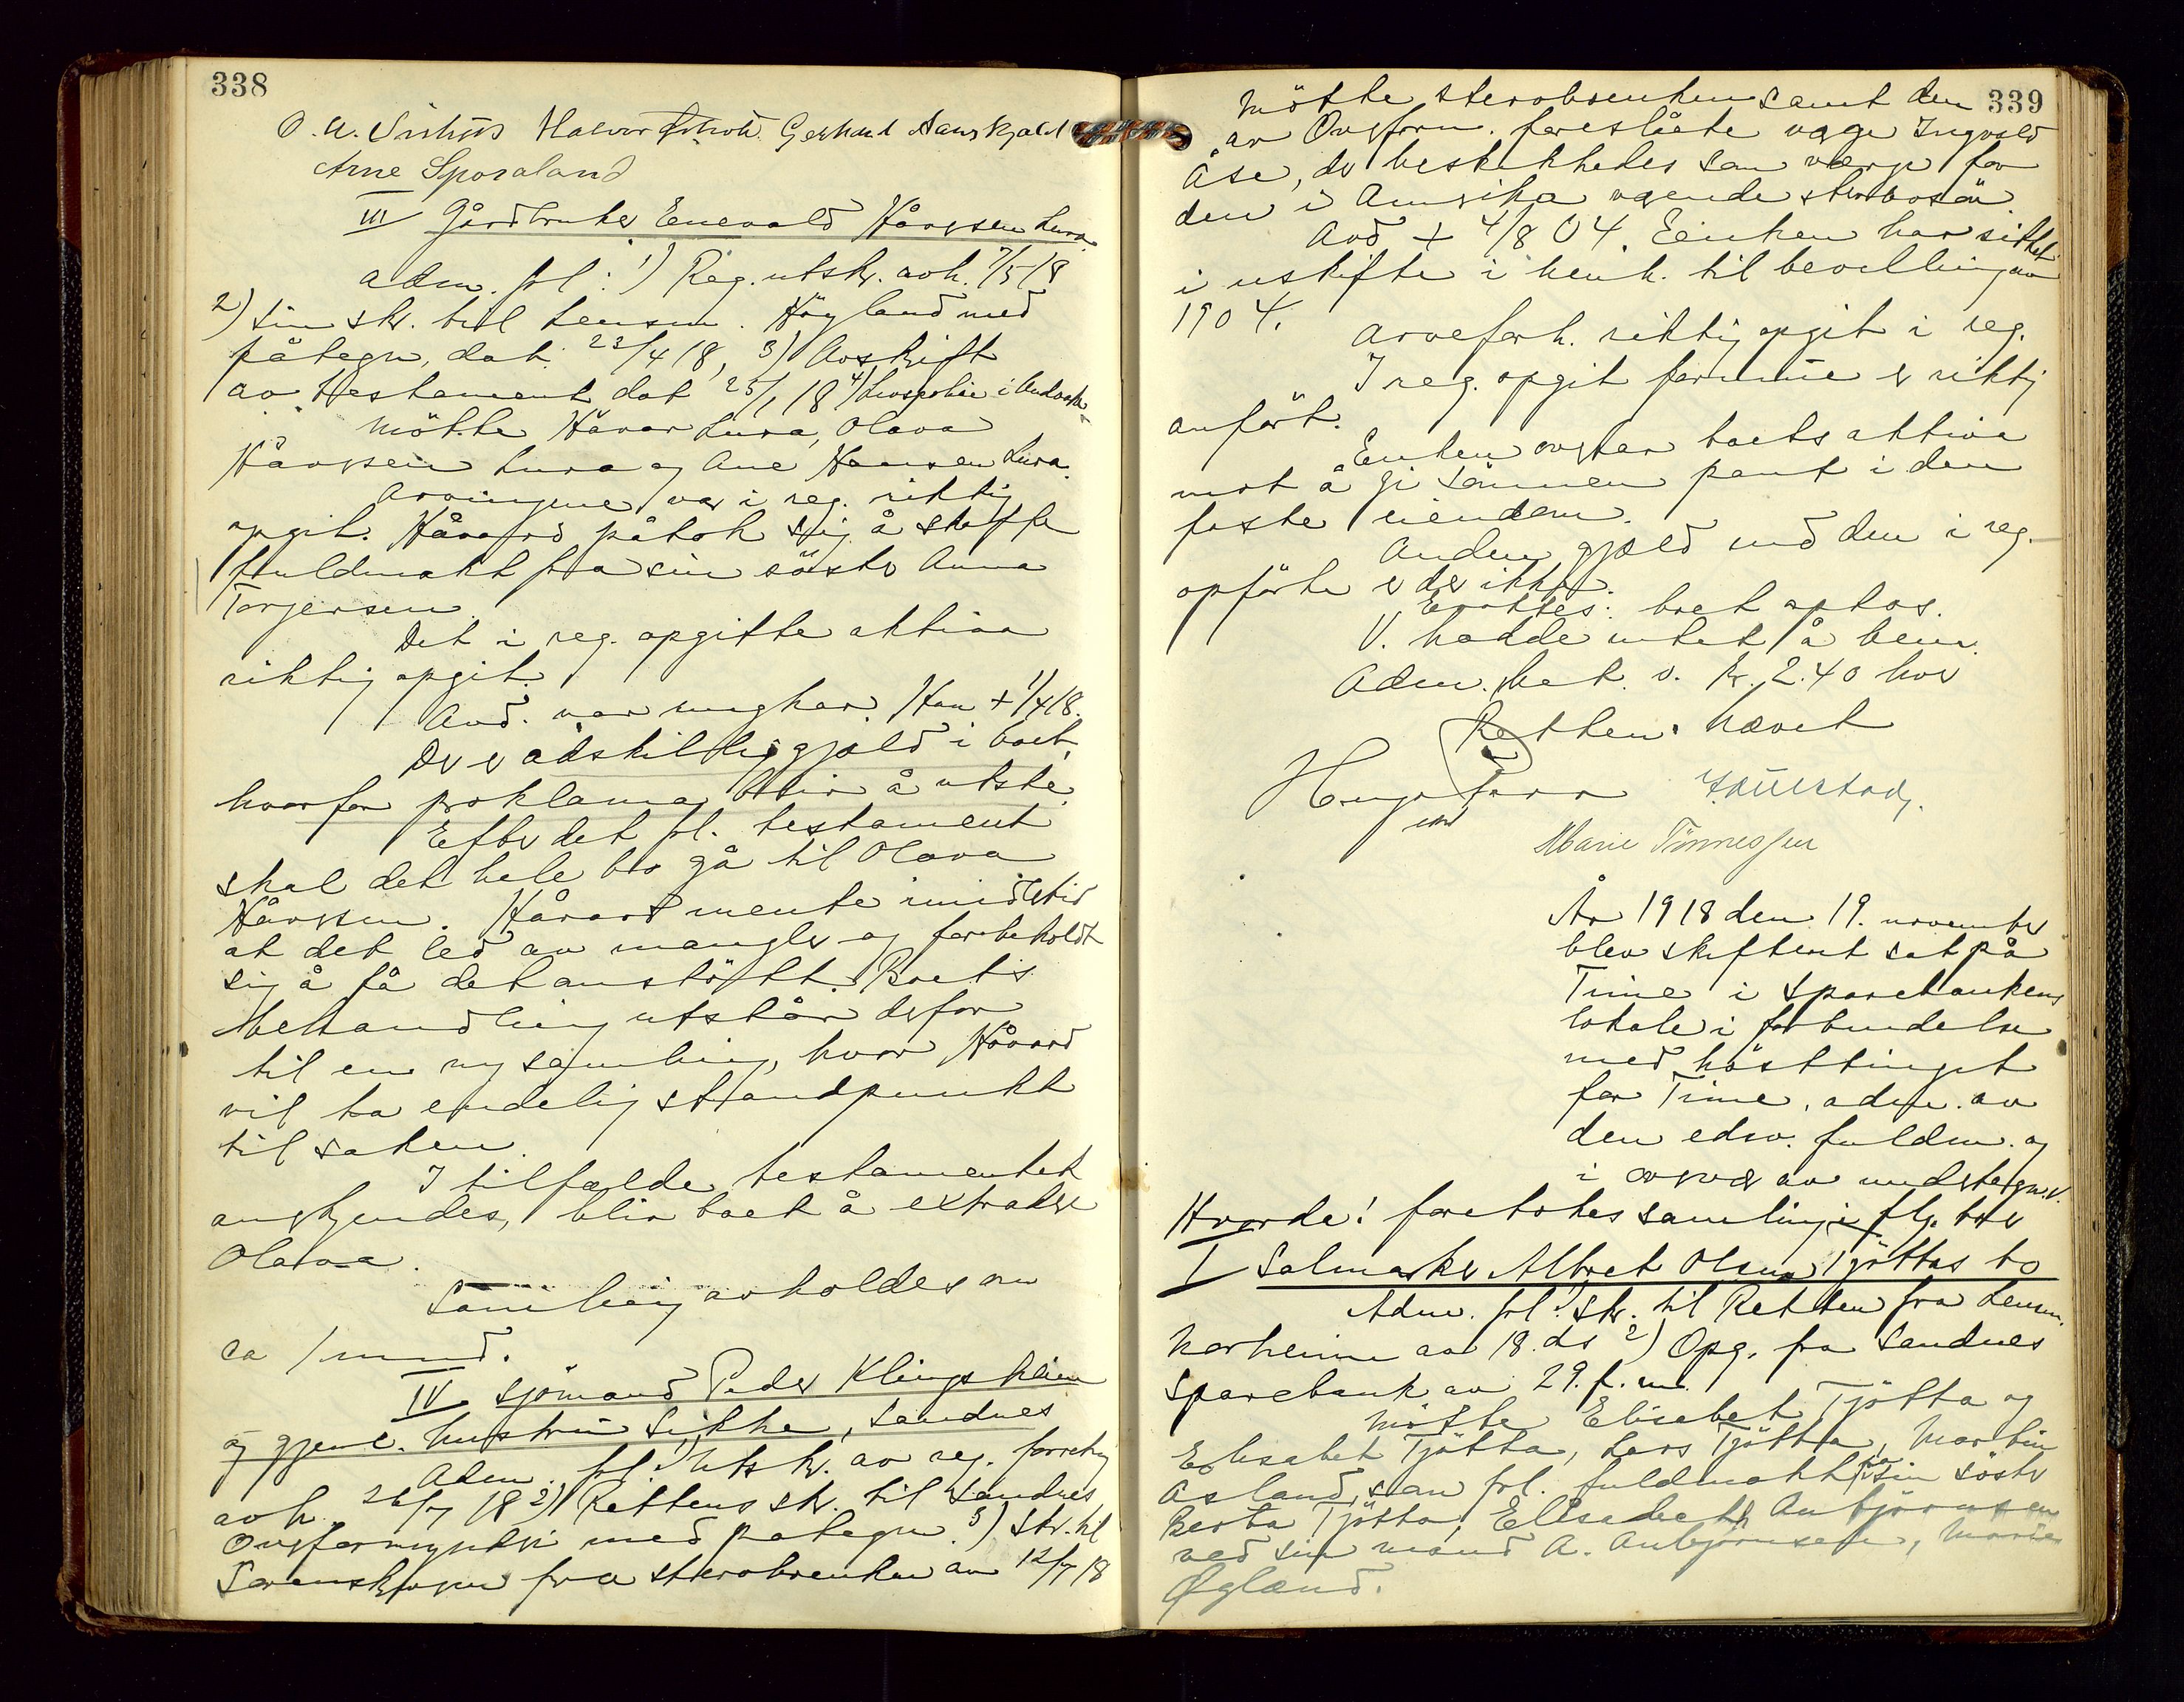 338
O. A.
Arne Sporaland
III Gårdbruker Enevald Hårssen Lura
adm. frl: 1) Reg. utskr. avh. 7/5 18
2) sin skr. til lensm. Högland med
påtegn, dat. 23/4 18, 3) Avskift
av testament dat 25/1 18 4)
mötte Håvar Lura, Olava
Hårssen Lura og Ane Hansen Lura.
Arvingene var i reg. riktig
opgit. Håvard påtok sig å skaffe
fuldmakt fra sin söster Anna
Torgersen.
Det i reg. opgitte aktiva
riktig opgit.
Avd. var ungkar. Han + 1/4 18.
Der er adskillig gjæld i boet,
hvorfor proklama blir å utste.
Efter det frl. testament
skal det hele bo gå til Olava
Hårssen. Håvard mente imidlertid
at det led av mangler og forbeholdt
sig å få det anstöttt. Boets
behandling utstår derfor
til en ny samling, hvor Håvard
vil ta endelig standpunkt
til saken.
I tilfælde testamentet
anerkjendes, blir boet å extradere
Olava.
Samling avholdes om
ca 1 mnd.
IV Sjömand Peder Klingsheim
og gjenl. hustru Sikke, Sandnes
Adm. frl. 1) Utskr. av reg. forretng
avh. 26/7 18 2) Rettens skr. til Sandnes
Overformynderi med pategn. 3) Skr. til
Sorenskriveren fra stervboenken av 12/7 18
339
Mötte stervboenken samt den
av Overform. foreslåtte verge Ingvald
Åse, der beskikkedes som værge for
den i Amerika værende stervbosön
Avd + 4/8 04. Enken har sittet
i uskifte i henh. til bevilling av
1904.
Arveforh. riktig opgit i reg.
I reg. opgit formue er riktig
anfört.
Enken overtar boets aktiva
mot å gi sönnen pant i den
faste eiendom.
Anden gjæld end den i reg.
opförte er der ikke.
Eragtes: boet optas.
V. hadde intet å bem.
Adm. bet. v. kr. 2.40 hver
Retten hævet
Marie Tönnessen
År 1918 den 19. november
blev skifteret sat på
Time i sparebankens
lokale i forbindelse
med hösttinget
for Time, adm. av
den edsv. fuldm. og
i overvær av undertegn. v.
Hvorde! foretokes samling i flg. boer
I Salmaker Albret Olsen Tjöttas bo
Adm. frl. 1) Skr. til Retten fra lensm.
Norheim av 18. ds 2) Opg. fra Sandnes
sparebank av 29. f. m.
Mötte Elisabet Tjötta og
Elisabet Tjötta, Lars Tjötta, Martin
Åsland, som frl. fuldmakt fra sin söster
Berta Tjötta, Elisabeth Anbjörnsen
ved sin mand A. Anbjörnsen, Marie
Øgland.